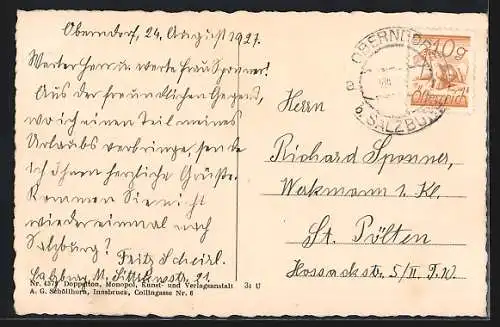 Oberndorf, 24. August 1927.
Werter Herr u. werte Frau Sponner!
Aus der freundlichen Gegend,
wo ich einen Teil meines
Urlaubs verbringe, sende
ich Ihnen herzliche Grüße.
Kommen Sie nicht
wieder einmal nach
Salzburg? Fritz Scheirl.
Salzburg, M. Sittikusstr. 21
Nr. 4371 Doppelton, Monopol, Kunst- und Verlagsanstalt
A. G. Schöllhorn, Innsbruck, Collingasse Nr. 6
OBERNDORF
b. SALZBURG
10 g
Österreich
Herrn
Richard Sponner,
Werkmann 1. Kl.
St. Pölten
Hossackstr. 5/II T. 10